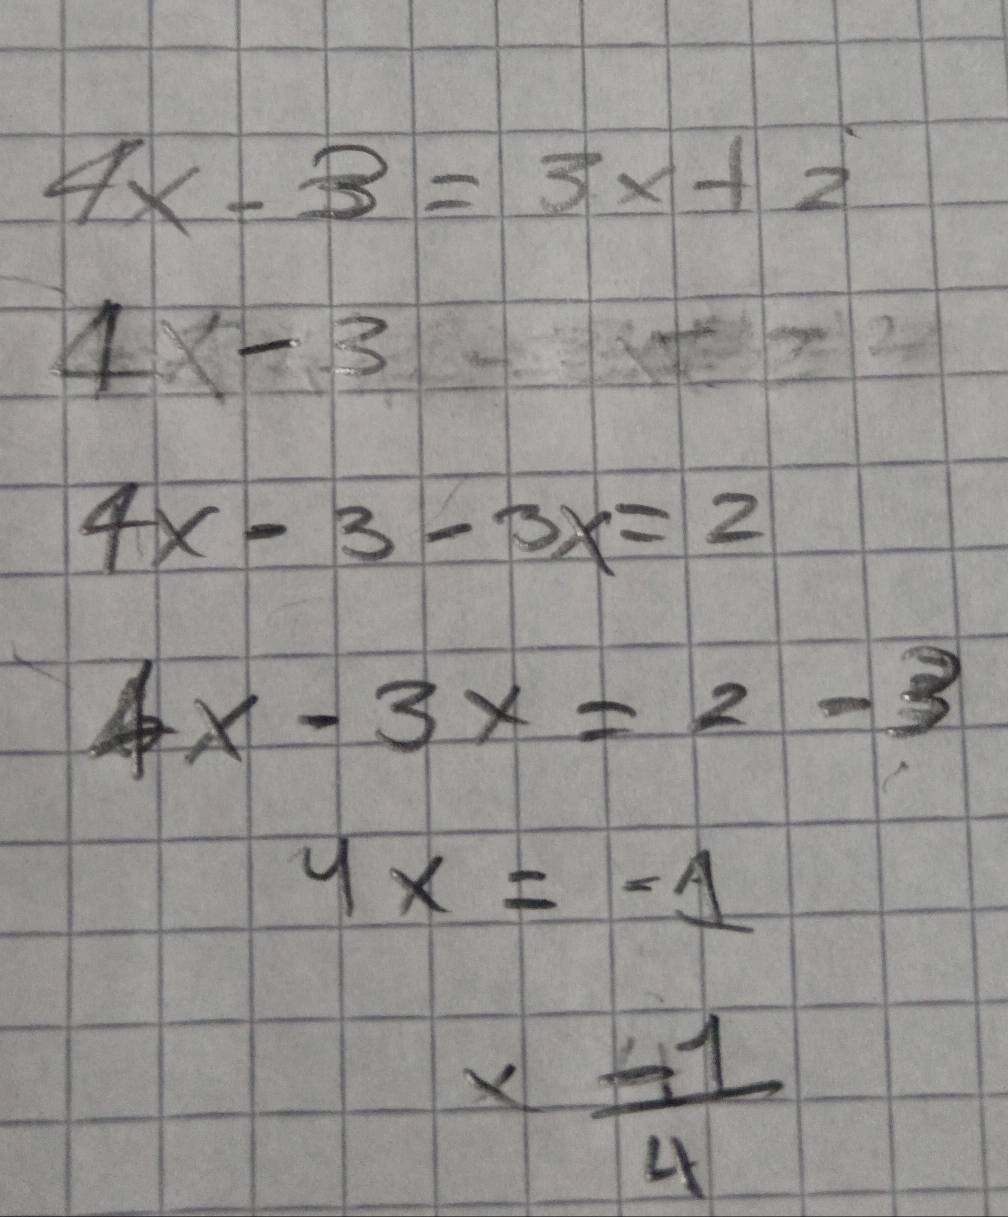 4x - 3 = 3x + 2
4x - 3
4x - 3 - 3x = 2
4x - 3x = 2 - 3
4x = -1
x -1/4